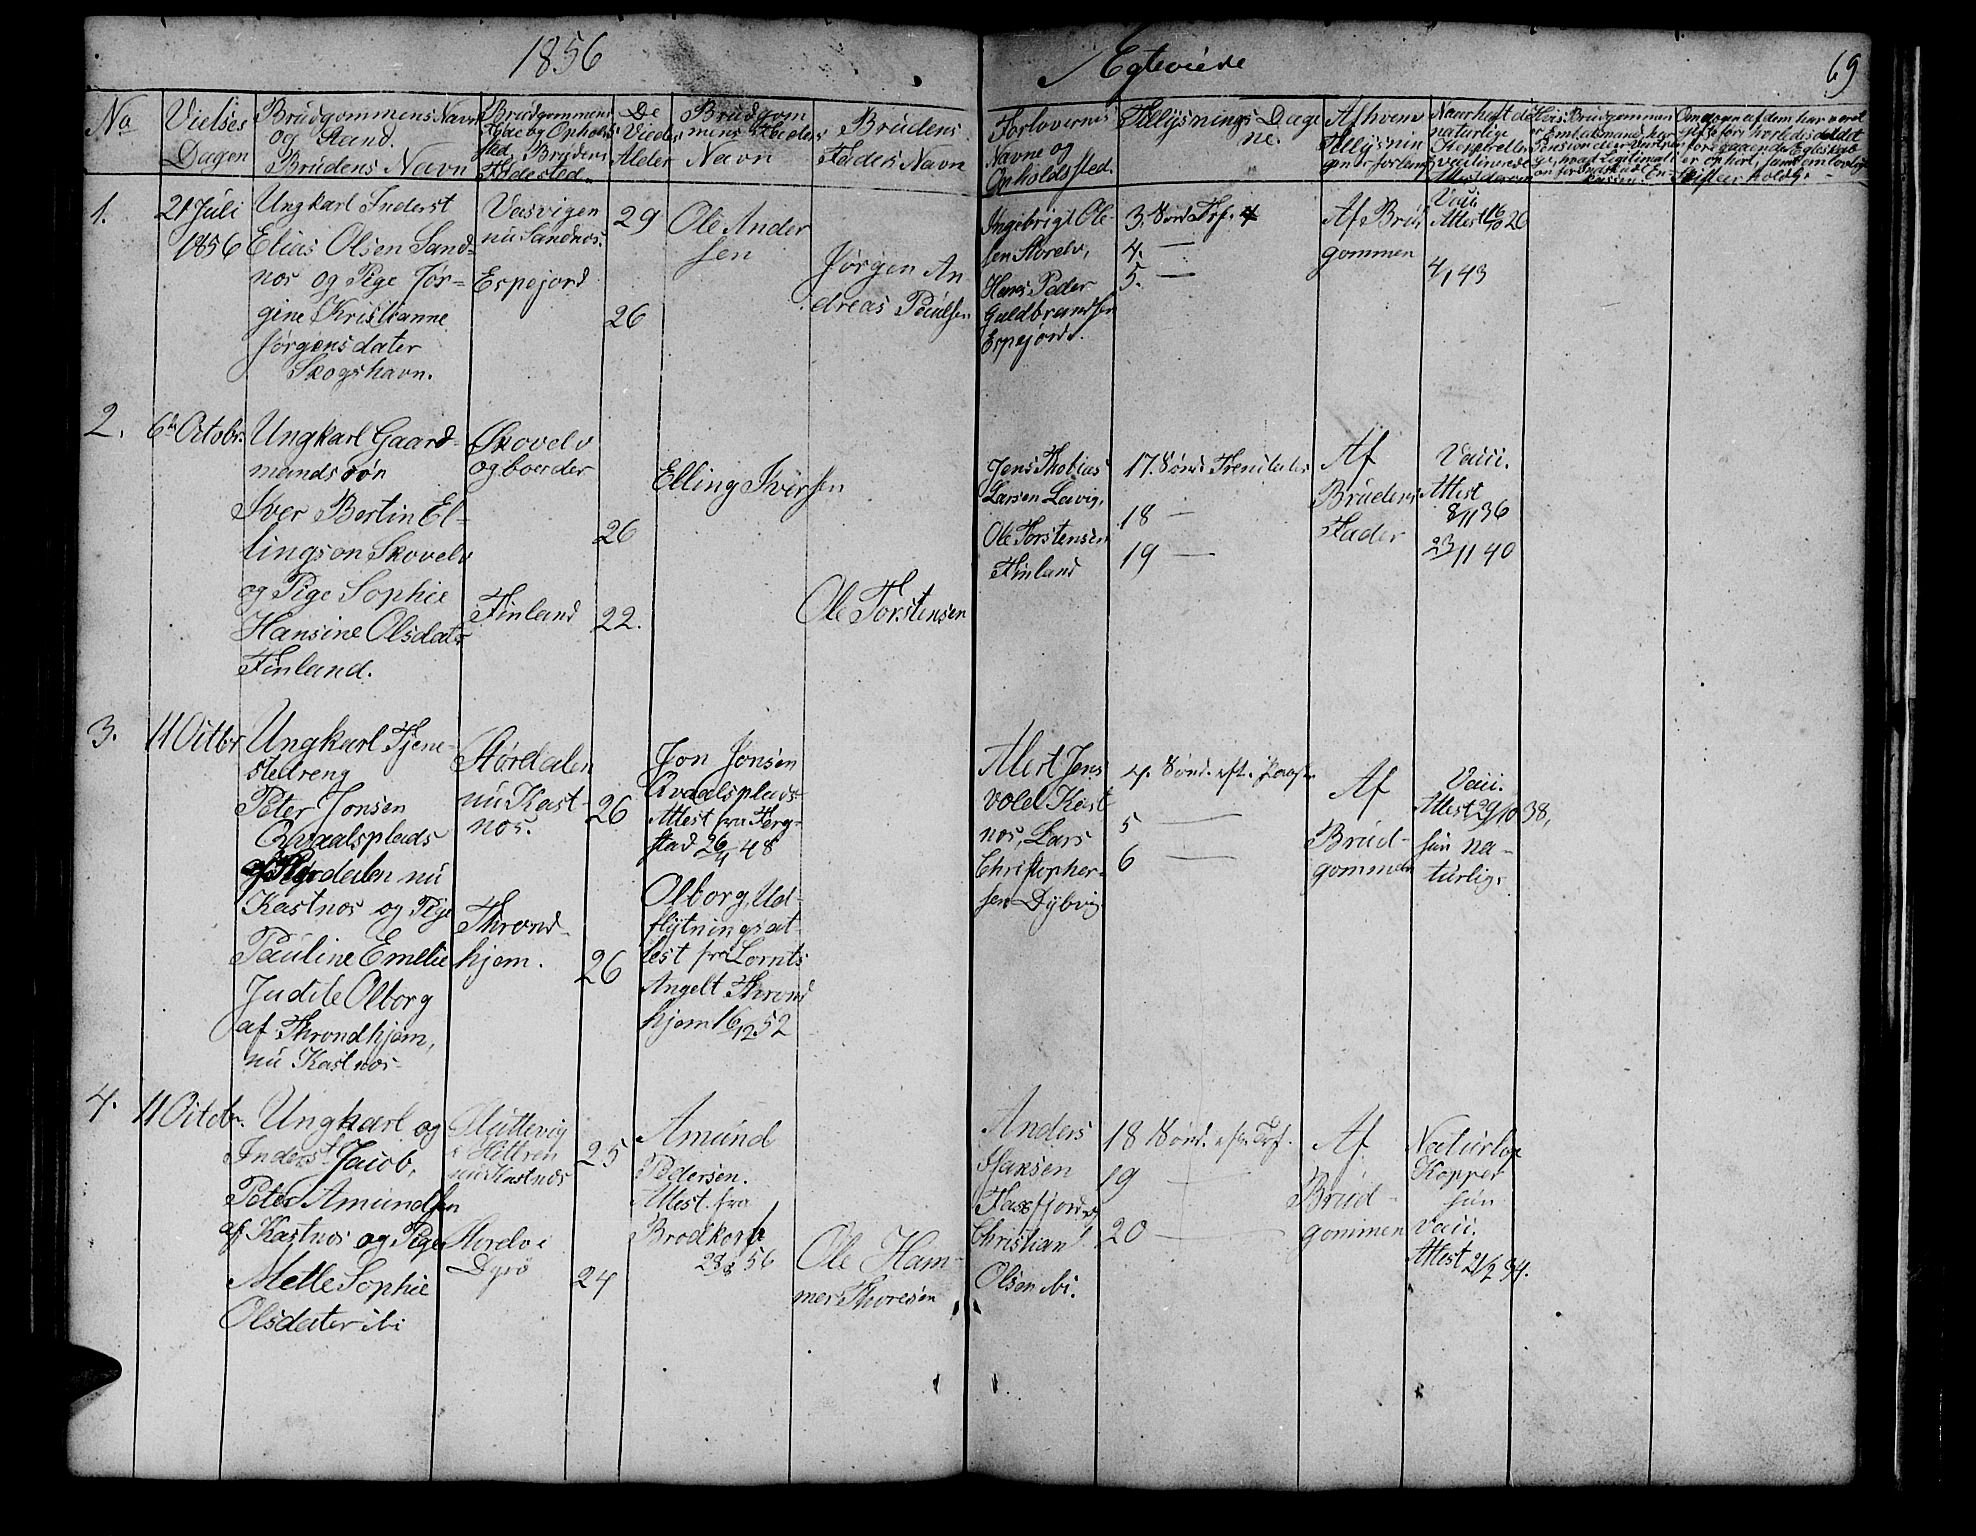 1856
Egteviede
69
No
Vielses
Dagen
Brudgommens Navn
og Stand.
Brudens Navn
Brudgommens
Føde og Opholds
sted, Brudens
Fødested.
De
Viedes
Alder
Brudgom
mens Faders
Navn
Brudens
Faders Navn
Forlovernes
Navne og
Opholdssted.
Tillysnings Dage
ne.
Af hvem
Tillysnin
gen er forlangt
naturlige
Kopper eller
vaccinerede
1.
21 Juli
1856
Ungkarl Inderst
Elias Olsen Sand-
nos og Pige Jør-
gine Kristianne
Jørgensdater
Skogshavn.
Vasvigen
nu Sandnos.
Espejord
29
26
Ole Ander
sen
Jørgen An
dreas Poulsen
Ingebrigt Ole-
sen Storelv,
Hans Peder
Guldbrandsen
Espejord.
3. Sønd. Trf.
4. —
5. —
Af Brud
gommen
Vacci
Attest 16/10 20
4/1 43
2.
6te Octobr.
Ungkarl Gaard-
mandssøn
Iver Bertin El-
lingsøn Skovelv
og Pige Sophie
Hansine Olsdatr
Finland.
Skovelv
og boer der
Finland
26
22.
Elling Iversen
Ole Torstensen
Jens Thobias
Larsen Lavig,
Ole Torstensen
Finland
17. Sønd. Trenitatis
18 —
19 —
Af
Brudens
Fader
Vacci.
Attest
8/11 36
23/11 40
3.
11 Octbr
Ungkarl Tjene-
stedreng
Peter Jonsen
Qvaalsplads
af Størdalen nu
Kastnos og Pige
Pauline Emelie
Judite Olborg
af Throndhjem,
nu Kastnos-
Størdalen
nu Kast-
nos.
Thrond-
hjem.
26
26
Jon Jonsen
Qvaalsplads
Attest fra
48
Olborg, Ud-
flytningsat-
test fra Lornts
Angelt Thrond
hjem 16/12 52
Alert Jens
vold Kast
nos, Lars
Christopher-
sen Dybvig
4. Sønd. eft.
5 —
6 —
Af
Brud-
gommen
Vacci.
Attest 29/10 38,
hun na-
turlig.
4.
11 Octobr.
Ungkarl og
Inderst Jacob,
Peter Amundsen
af Kastnos og Pige
Mette Sophie
Olsdater ibi
Slattevig
i Hittren
nu Kastnos
Storelv i
Dyrø
25
24
Amund
Pedersen.
Attest fra
Brodkorb
28/8 56
Ole Ham-
mer Thoresen
Anders
Hansen
Faxfjord og
Christian
Olsen ibi.
18 Sønd. efter Trf.
19 —
20 —
Af
Brud-
gommen
Naturlige
Kopper
hun
Vacci.
Attest 21/2 34.